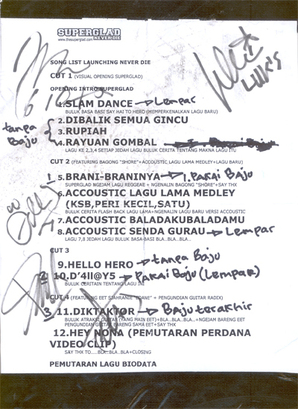 SUPERGLAD
SONG LIST LAUNCHING NEVER DIE
CUT 1 (VISUAL OPENING SUPERGLAD)
OPENING INTROSUPERGLAD
1.SLAM DANCE → Lempar
BULUK BASA BASI SAY HAI TO HERO (MEMPERKENALKAN LAGU BARU)
2.DIBALIK SEMUA GINCU
tanpa baju
3.RUPIAH
4.RAYUAN GOMBAL
LAGU KE 2,3,4 SETIAP JEDAH LAGU BULUK CERITA TENTANG MAKNA LAGU ITU
CUT 2 (FEATURING BAGONG "SHORE"+ACCOUSTIC LAGU LAMA MEDLEY+LAGU BARU)
5.BRANI-BRANINYA → 1. Pakai Baju
SUPERGLAD NGEJAM LAGU REGGAE + NGENALIN BAGONG "SHORE"+SAY THX
6.ACCOUSTIC LAGU LAMA MEDLEY
(KSB,PERI KECIL,SATU)
BULUK CERITA FLASH BACK LAGU LAMA+NGENALIN LAGU BARU VERSI ACCOUSTIC
7.ACCOUSTIC BALADAKUBALADAMU
8.ACCOUSTIC SENDA GURAU → Lempar
LAGU 7,8 JEDAH LAGU BULUK BASA-BASI BLA..BLA..BLA..
CUT 3
9.HELLO HERO → tanpa Baju
2. 10.D'4II@Y5 → Pakai Baju (Lempar)
BULUK CERITAIN TENTANG LAGU INI
CUT 4
3 11.DIKTAKTOR → Baju terakhir
12.HEY NONA (PEMUTARAN PERDANA
VIDEO CLIP)
SAY THX TO....BLA..BLA..BLA+CLOSING
PEMUTARAN LAGU BIODATA